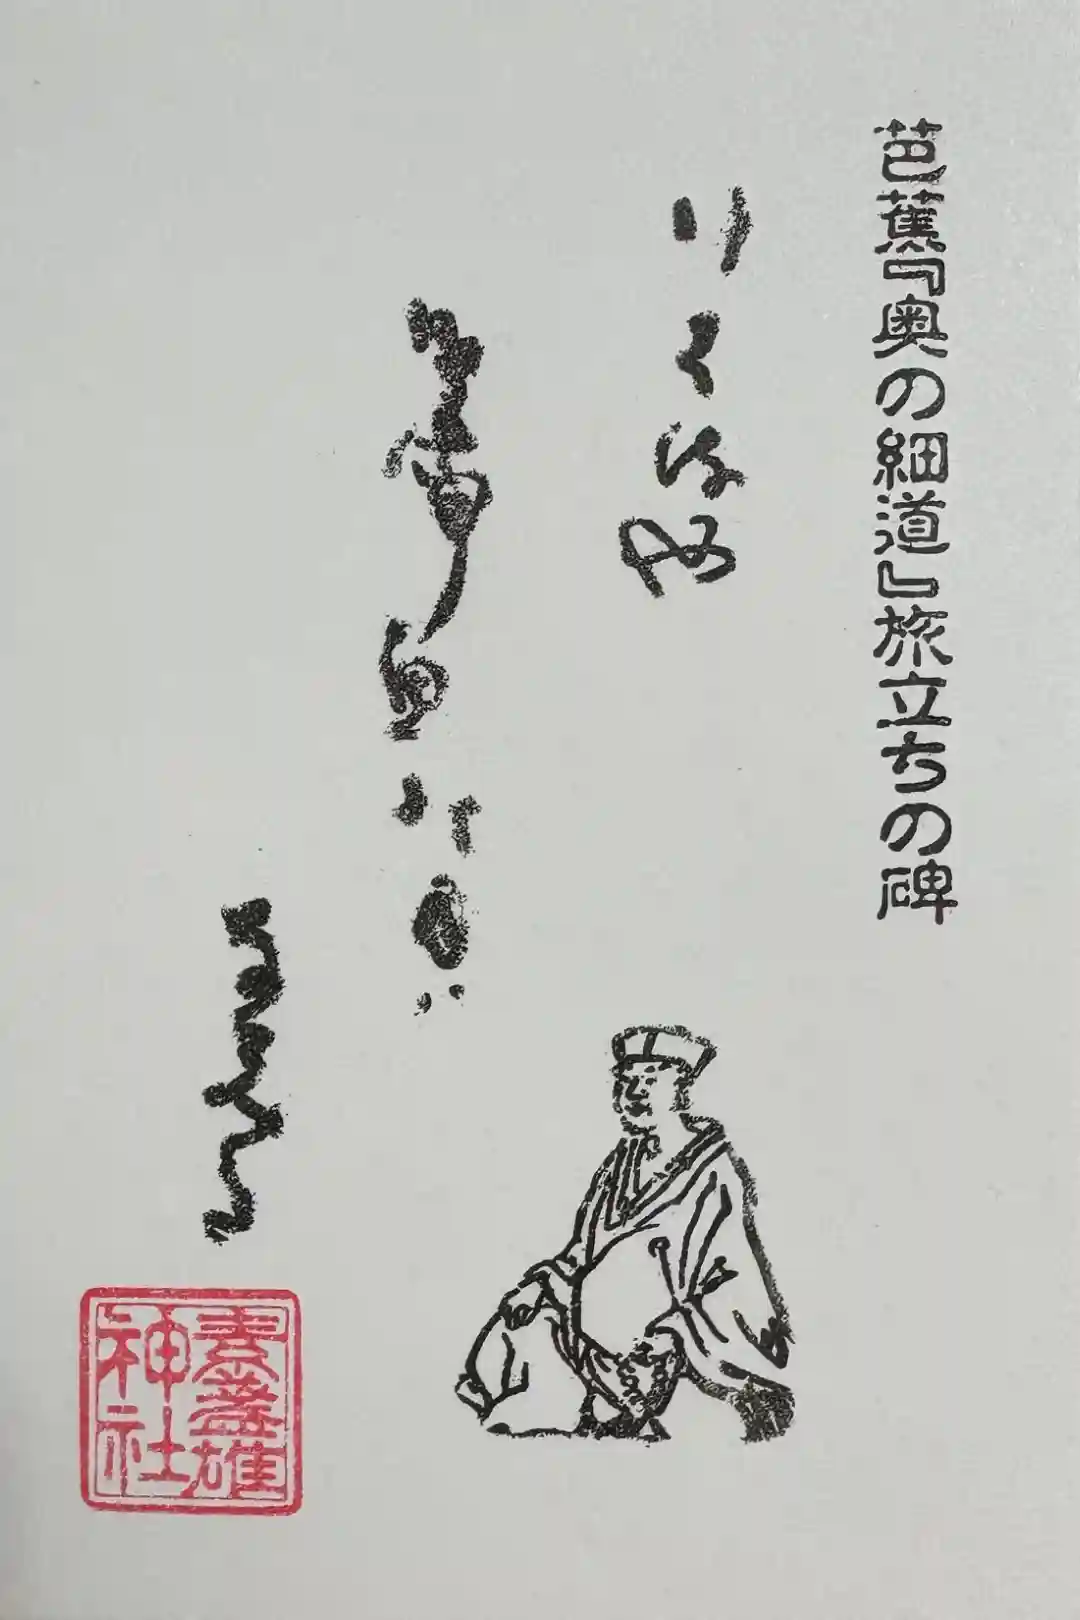 芭蕉『奥の細道』旅立ちの碑
行くはるや
鳥啼魚の目ハ
素盞雄
神社